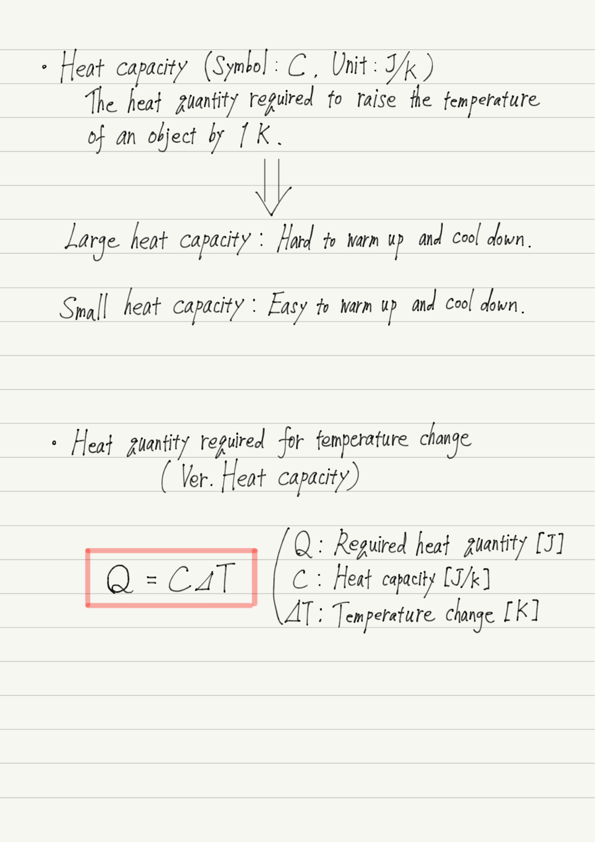 • Heat capacity (Symbol : C, Unit : J/k)
The heat quantity required to raise the temperature
of an object by 1 K.
Large heat capacity : Hard to warm up and cool down.
Small heat capacity : Easy to warm up and cool down.
• Heat quantity required for temperature change
(Ver. Heat capacity)
Q = CΔT
Q : Required heat quantity [J]
C : Heat capacity [J/k]
ΔT : Temperature change [K]